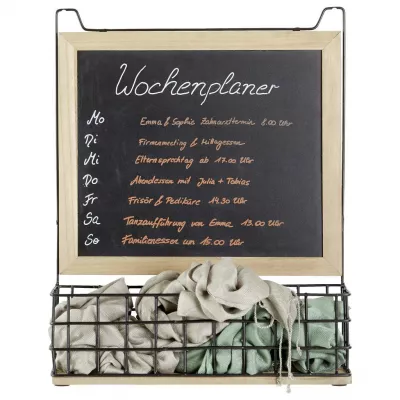 Wochenplaner
Mo Emma & Sophia Zahnarzttermin 8.00 Uhr
Di Firmenmeeting & Mittagessen
Mi Elternsprechtag ab 17.00 Uhr
Do Abendessen mit Julia + Tobias
Fr Frisör & Pediküre 14.30 Uhr
Sa Tanzaufführung von Emma 13.00 Uhr
So Familienessen um 15.00 Uhr